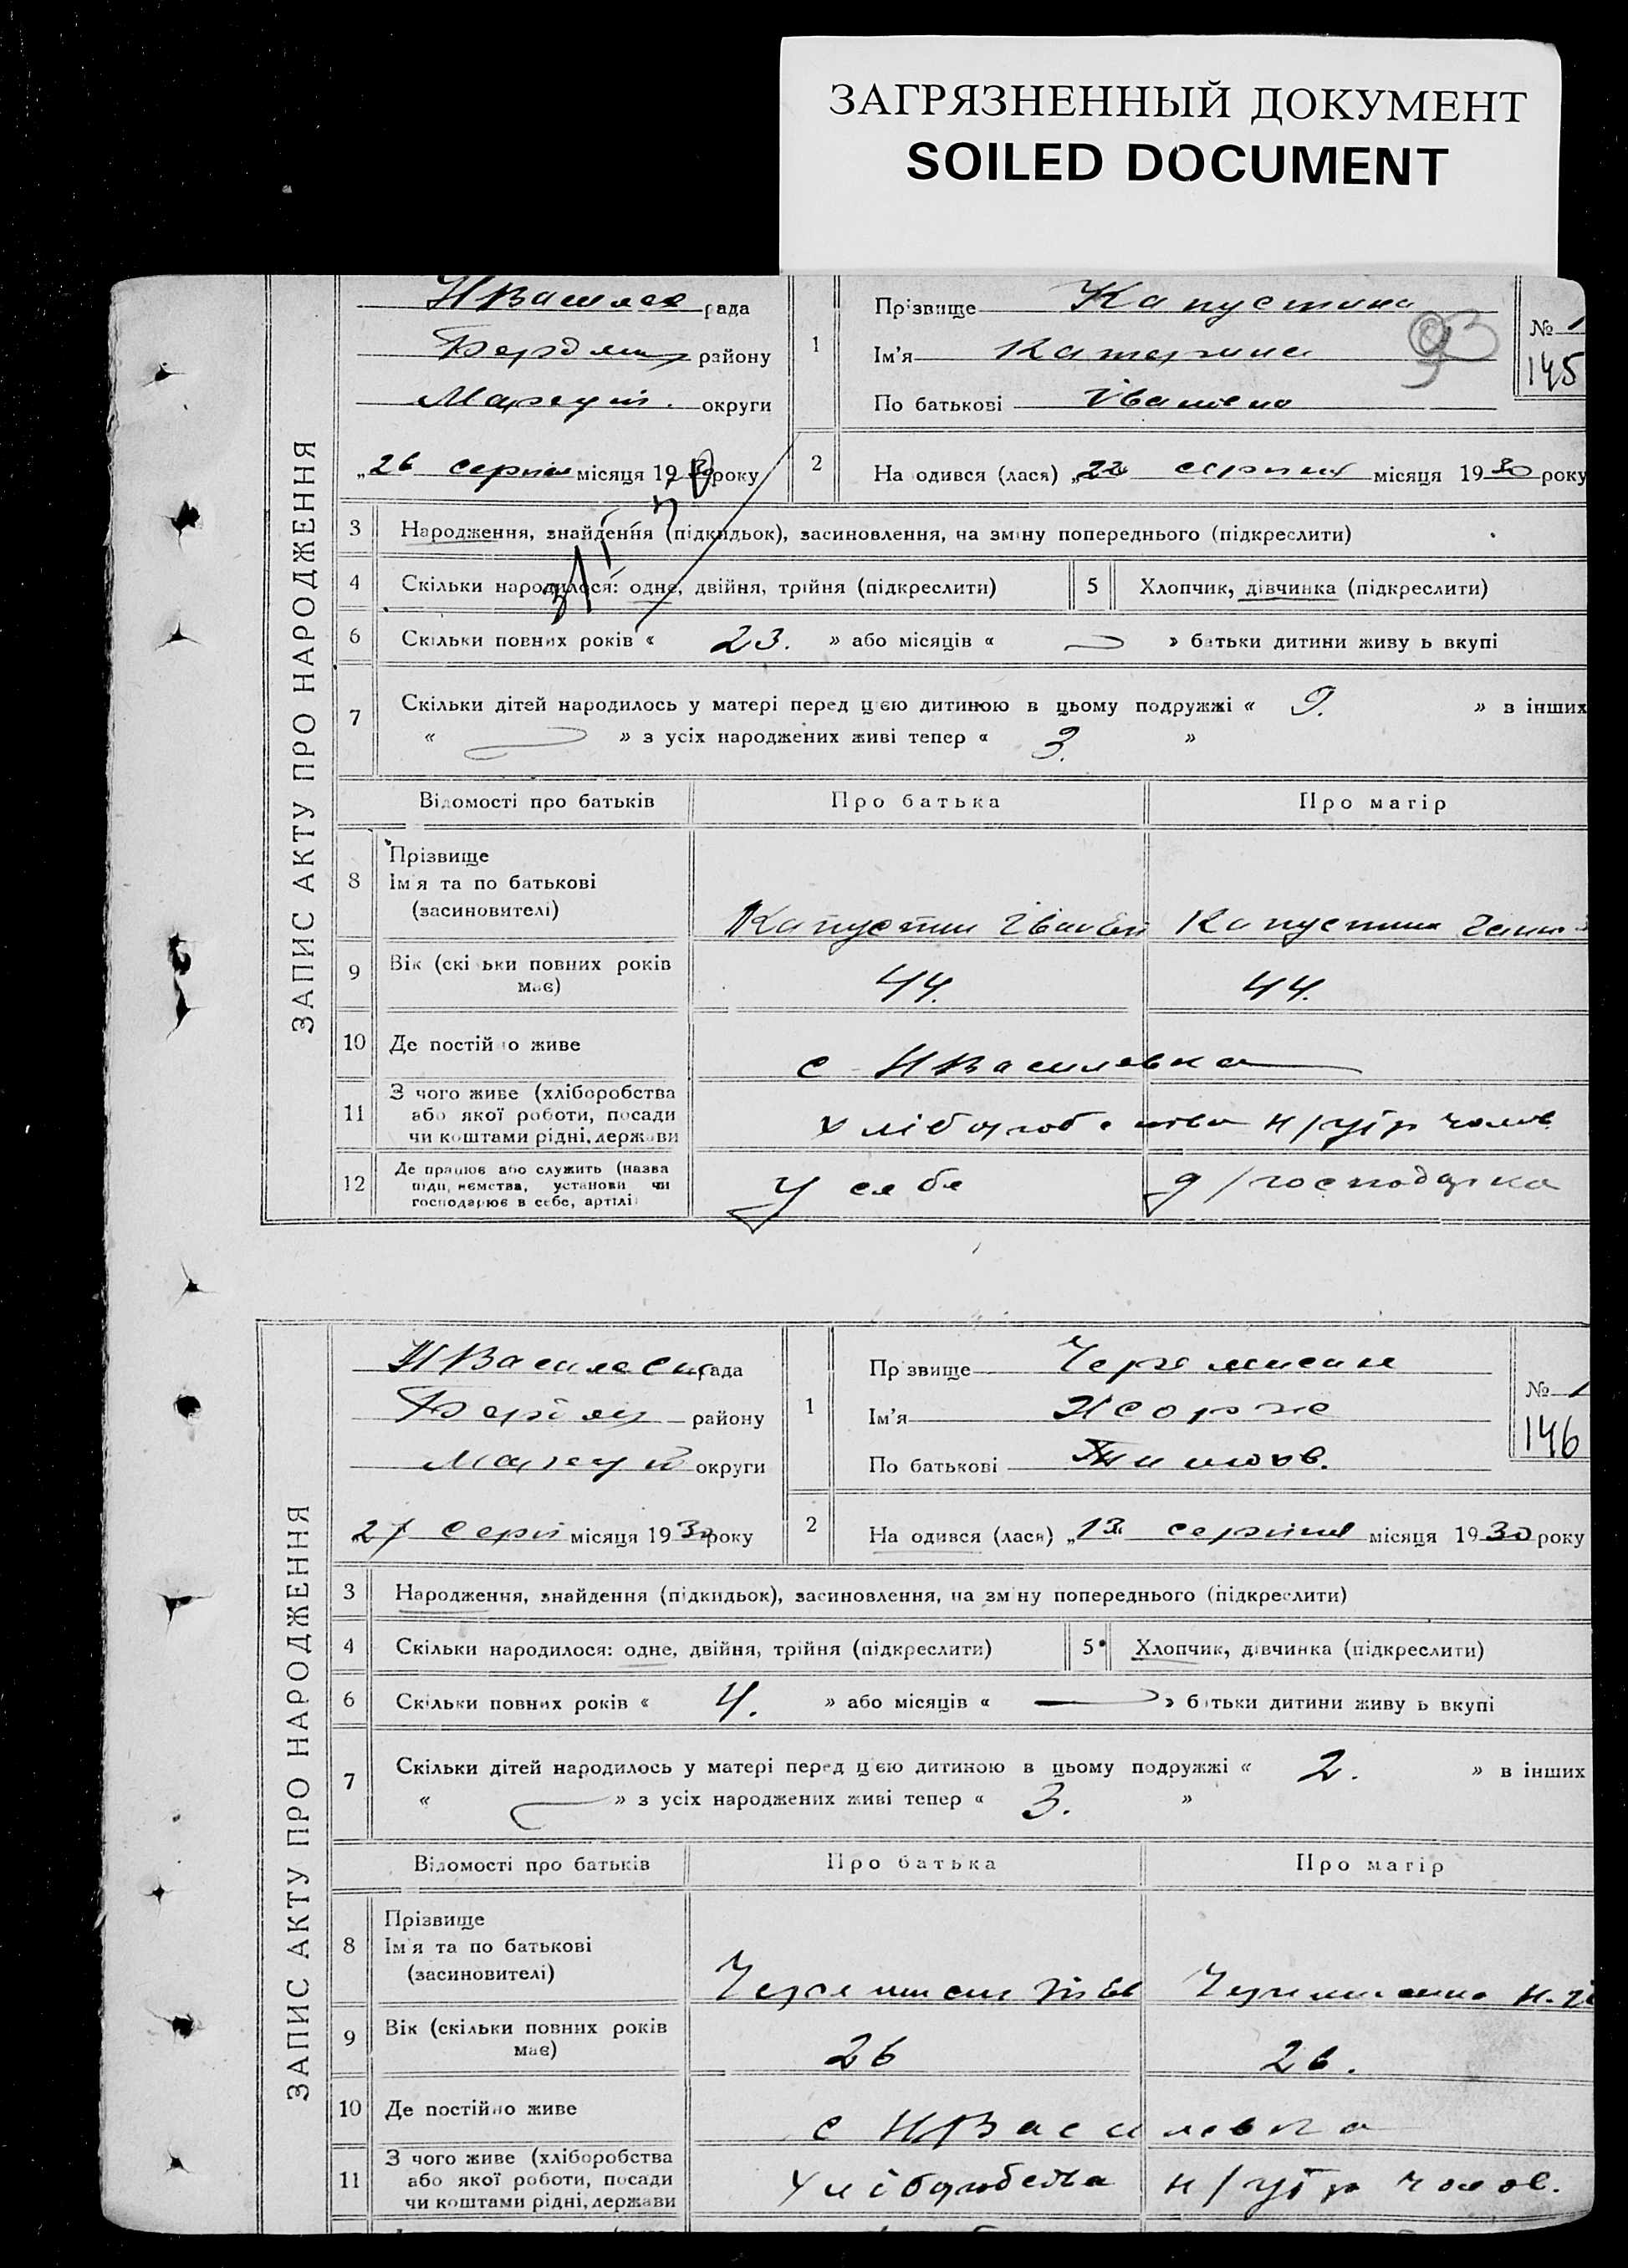 ЗАГРЯЗНЕННЫЙ ДОКУМЕНТ
SOILED DOCUMENT
ЗАПИС АКТУ ПРО НАРОДЖЕННЯ
рада
району
округи
„26 серпня місяця 1930 року
1
Прізвище Капустина
Ім'я Катерина
По батькові Іванівна
№ 1
145
93
2 На одився (лася) „22 серпня місяця 1930 року
3 Народження, знайдення (підкидьок), засиновлення, на зміну попереднього (підкреслити)
4 Скільки народилося: одне, двійня, трійня (підкреслити)
5 Хлопчик, дівчинка (підкреслити)
6 Скільки повних років « 23. » або місяців « » батьки дитини живу ь вкупі
7 Скільки дітей народилось у матері перед цією дитиною в цьому подружжі « 9. » в інших
« » з усіх народжених живі тепер « 3. »
Відомості про батьків Про батька Про матір
8 Прізвище
Ім'я та по батькові
(засиновителі)
Капустин Іван Капустина
9 Вік (скі ьки повних років
має)
44. 44.
10 Де постійно живе с НВасилевка
11 З чого живе (хліборобства
або якої роботи, посади
чи коштами рідні, держави
хліборобство н/утр чолов
12 Де працює або служить (назва
підприємства, установи чи
господарює в себе, артілі
у себе д/господарка
ЗАПИС АКТУ ПРО НАРОДЖЕННЯ
НВасилевск рада
району
округи
„27 серп місяця 1930 року
1
Пр звище Черемисин
Ім'я
По батькові
№ 1
146
2 На одився (лася) „13 серпня місяця 1930 року
3 Народження, знайдення (підкидьок), засиновлення, на зміну попереднього (підкреслити)
4 Скільки народилося: одне, двійня, трійня (підкреслити)
5 Хлопчик, дівчинка (підкреслити)
6 Скільки повних років « 4. » або місяців « » батьки дитини живу ь вкупі
7 Скільки дітей народилось у матері перед цією дитиною в цьому подружжі « 2. » в інших
« » з усіх народжених живі тепер « 3. »
Відомості про батьків Про батька Про матір
8 Прізвище
Ім'я та по батькові
(засиновителі)
Черемисин Черемисина
9 Вік (скільки повних років
має)
26 26.
10 Де постійно живе с НВасилевка
11 З чого живе (хліборобства
або якої роботи, посади
чи коштами рідні, держави
хліборобства н/утр чолов.